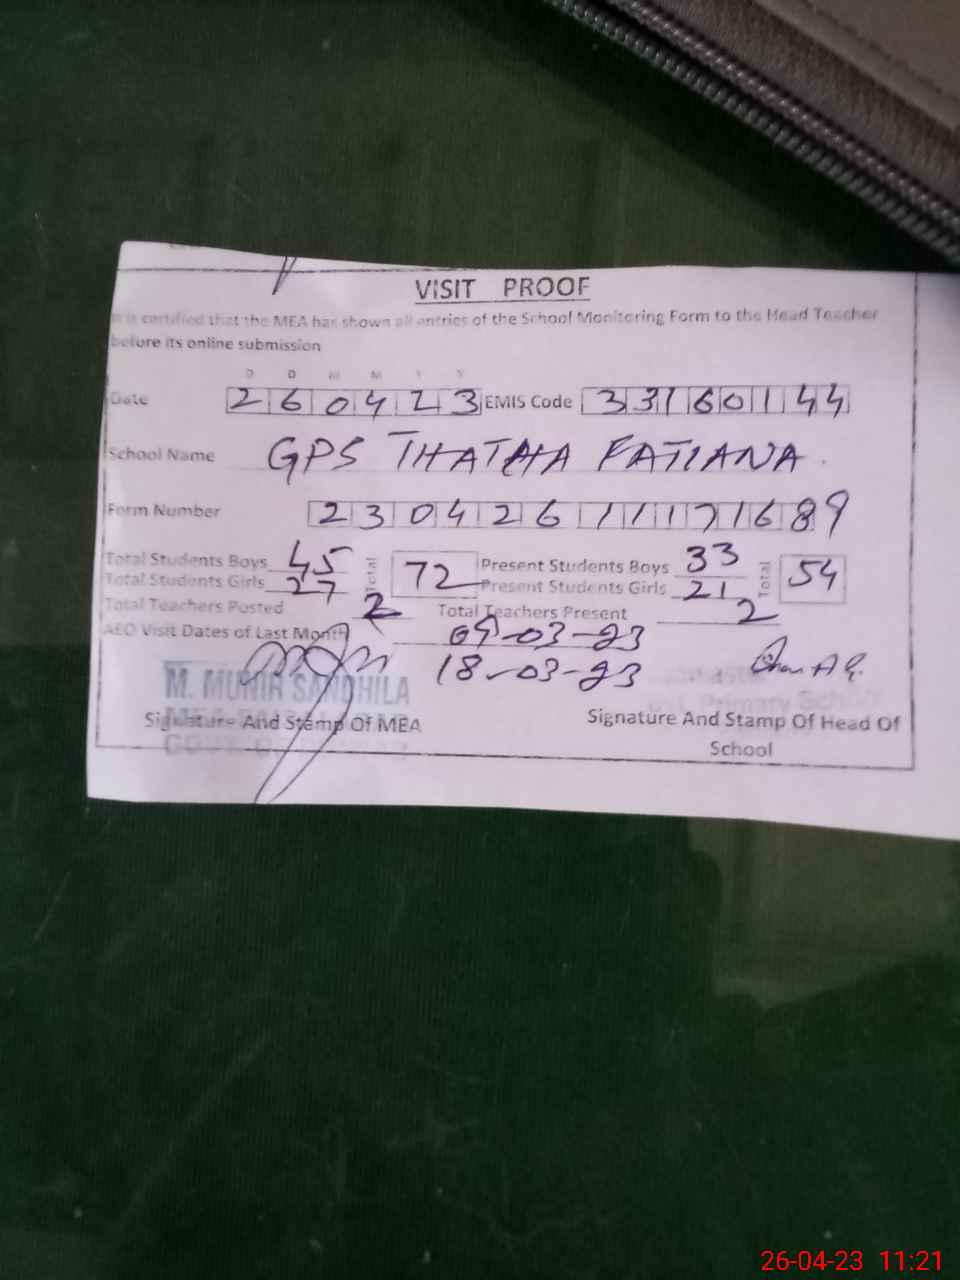 VISIT PROOF
It is certified that the MEA has shown all entries of the School Monitoring Form to the Head Teacher
before its online submission
D D M M Y Y
Date 260423 EMIS Code 33160144
School Name GPS THATHA FATIANA
Form Number 2304261117 1689
Total Students Boys 45 Total 72 Present Students Boys 33 Total 54
Total Students Girls 27 Present Students Girls 21
Total Teachers Posted 2 Total Teachers Present 2
AEO Visit Dates of Last Month 09-03-23
18-03-23
M. MUNIR SANDHILA
Primary School
Signature And Stamp Of MEA Signature And Stamp Of Head Of
School
26-04-23 11:21